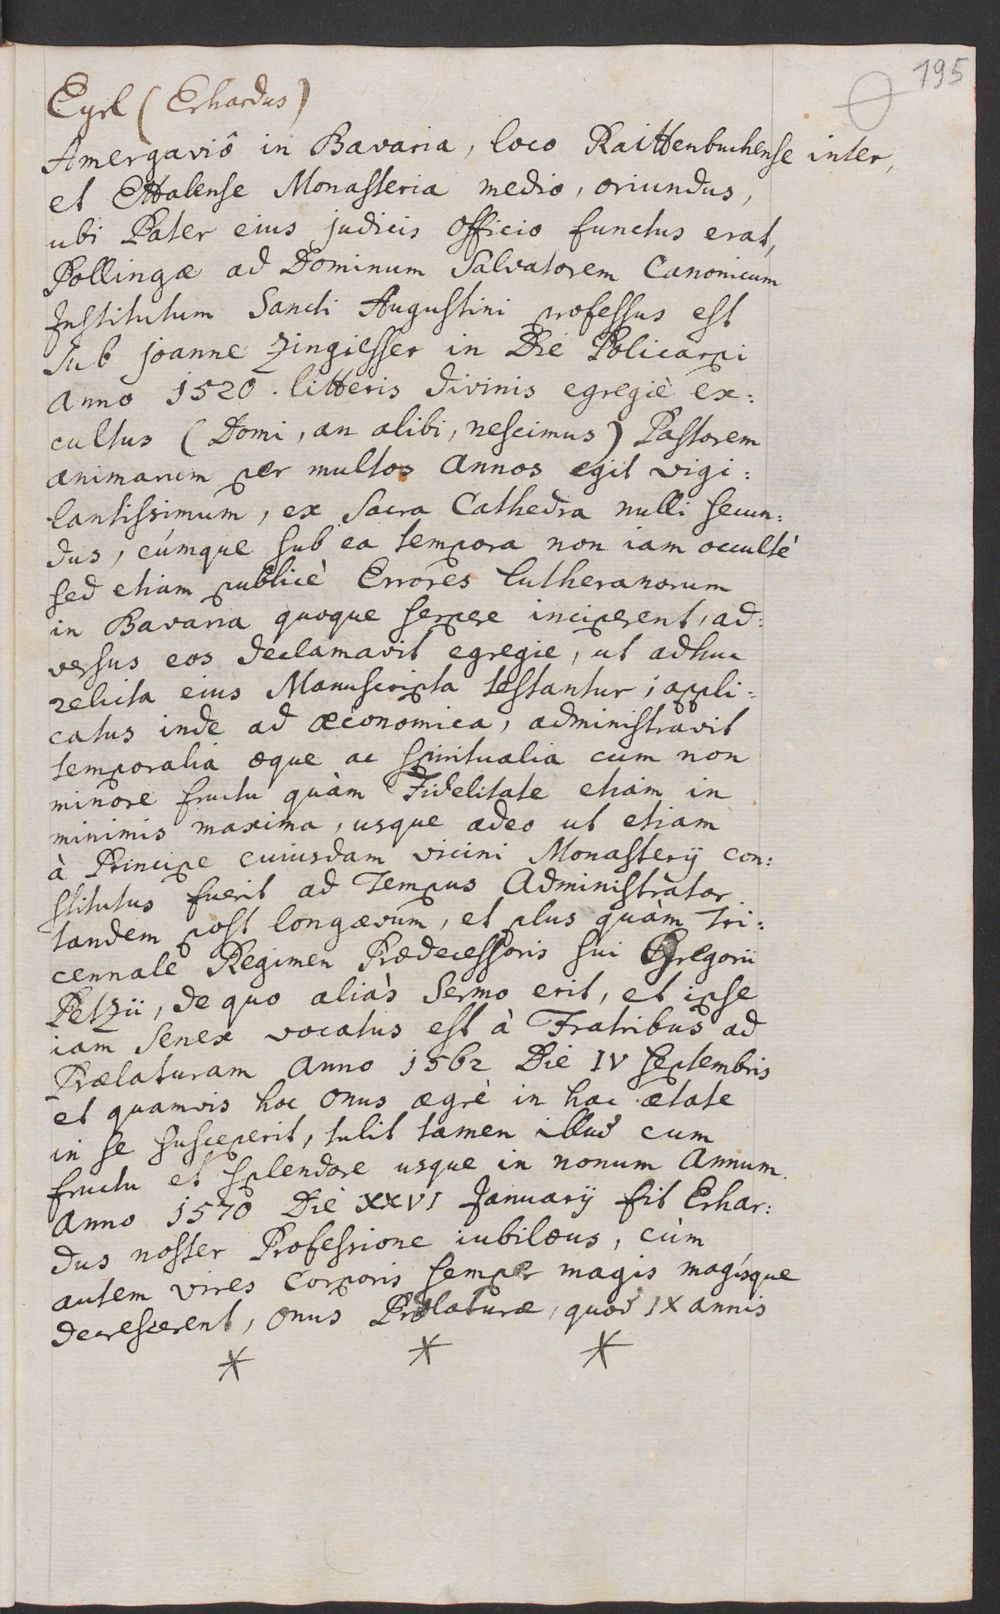 195
Eyrl (Erhardus)
Amergaviô in Bavaria, loco Raittenbuchense inter,
et Ettalense Monasteria medio, oriundus,
ubi Pater eius judicis officio functus erat,
Pollingæ ad Dominum Salvatorem Canonicum
Institutum Sancti Augustini professus est
sub joanne Zingiesser in Die Policarpi
anno 1520. litteris divinis egregiè ex:
cultus (Domi, an alibi, nescimus) Pastorem
animarum per multos annos egit vigi:
lantissimum, ex Sacra Cathedra nulli secun:
dus, cúmque sub ea tempora non iam occultè
sed etiam publicè Errores Lutheranorum
in Bavaria quoque serpere inciperent, ad:
versus eos declamavit egregie, ut adhuc
relicta eius Manuscripta testantur; appli:
catus inde ad œconomica, administravit
temporalia æque ac spiritualia cum non
minore fructu quàm Fidelitate etiam in
minimis maxima, usque adeo ut etiam
à Principe cuiusdam vicini Monasterij con:
stitutus fuerit ad Tempus Administrator
tandem post longævum, et plus quàm Tri:
cennale Regimen Prædecessoris sui Gregorii
Petzii, de quo aliàs Sermo erit, et ipse
iam Senex vocatus est à Fratribus ad
Prælaturam Anno 1562 Die IV Septembris
et quamvis hoc onus ægrè in hac ætate
in se susceperit, tulit tamen illud cum
fructu et splendore usque in nonum Annum.
Anno 1570 Die XXVI Januarij fit Erhar:
dus noster Professione iubilæus, cùm
autem vires Corporis semper magis magisque
decrescerent, onus Prælaturæ, quod IX annis
* * *